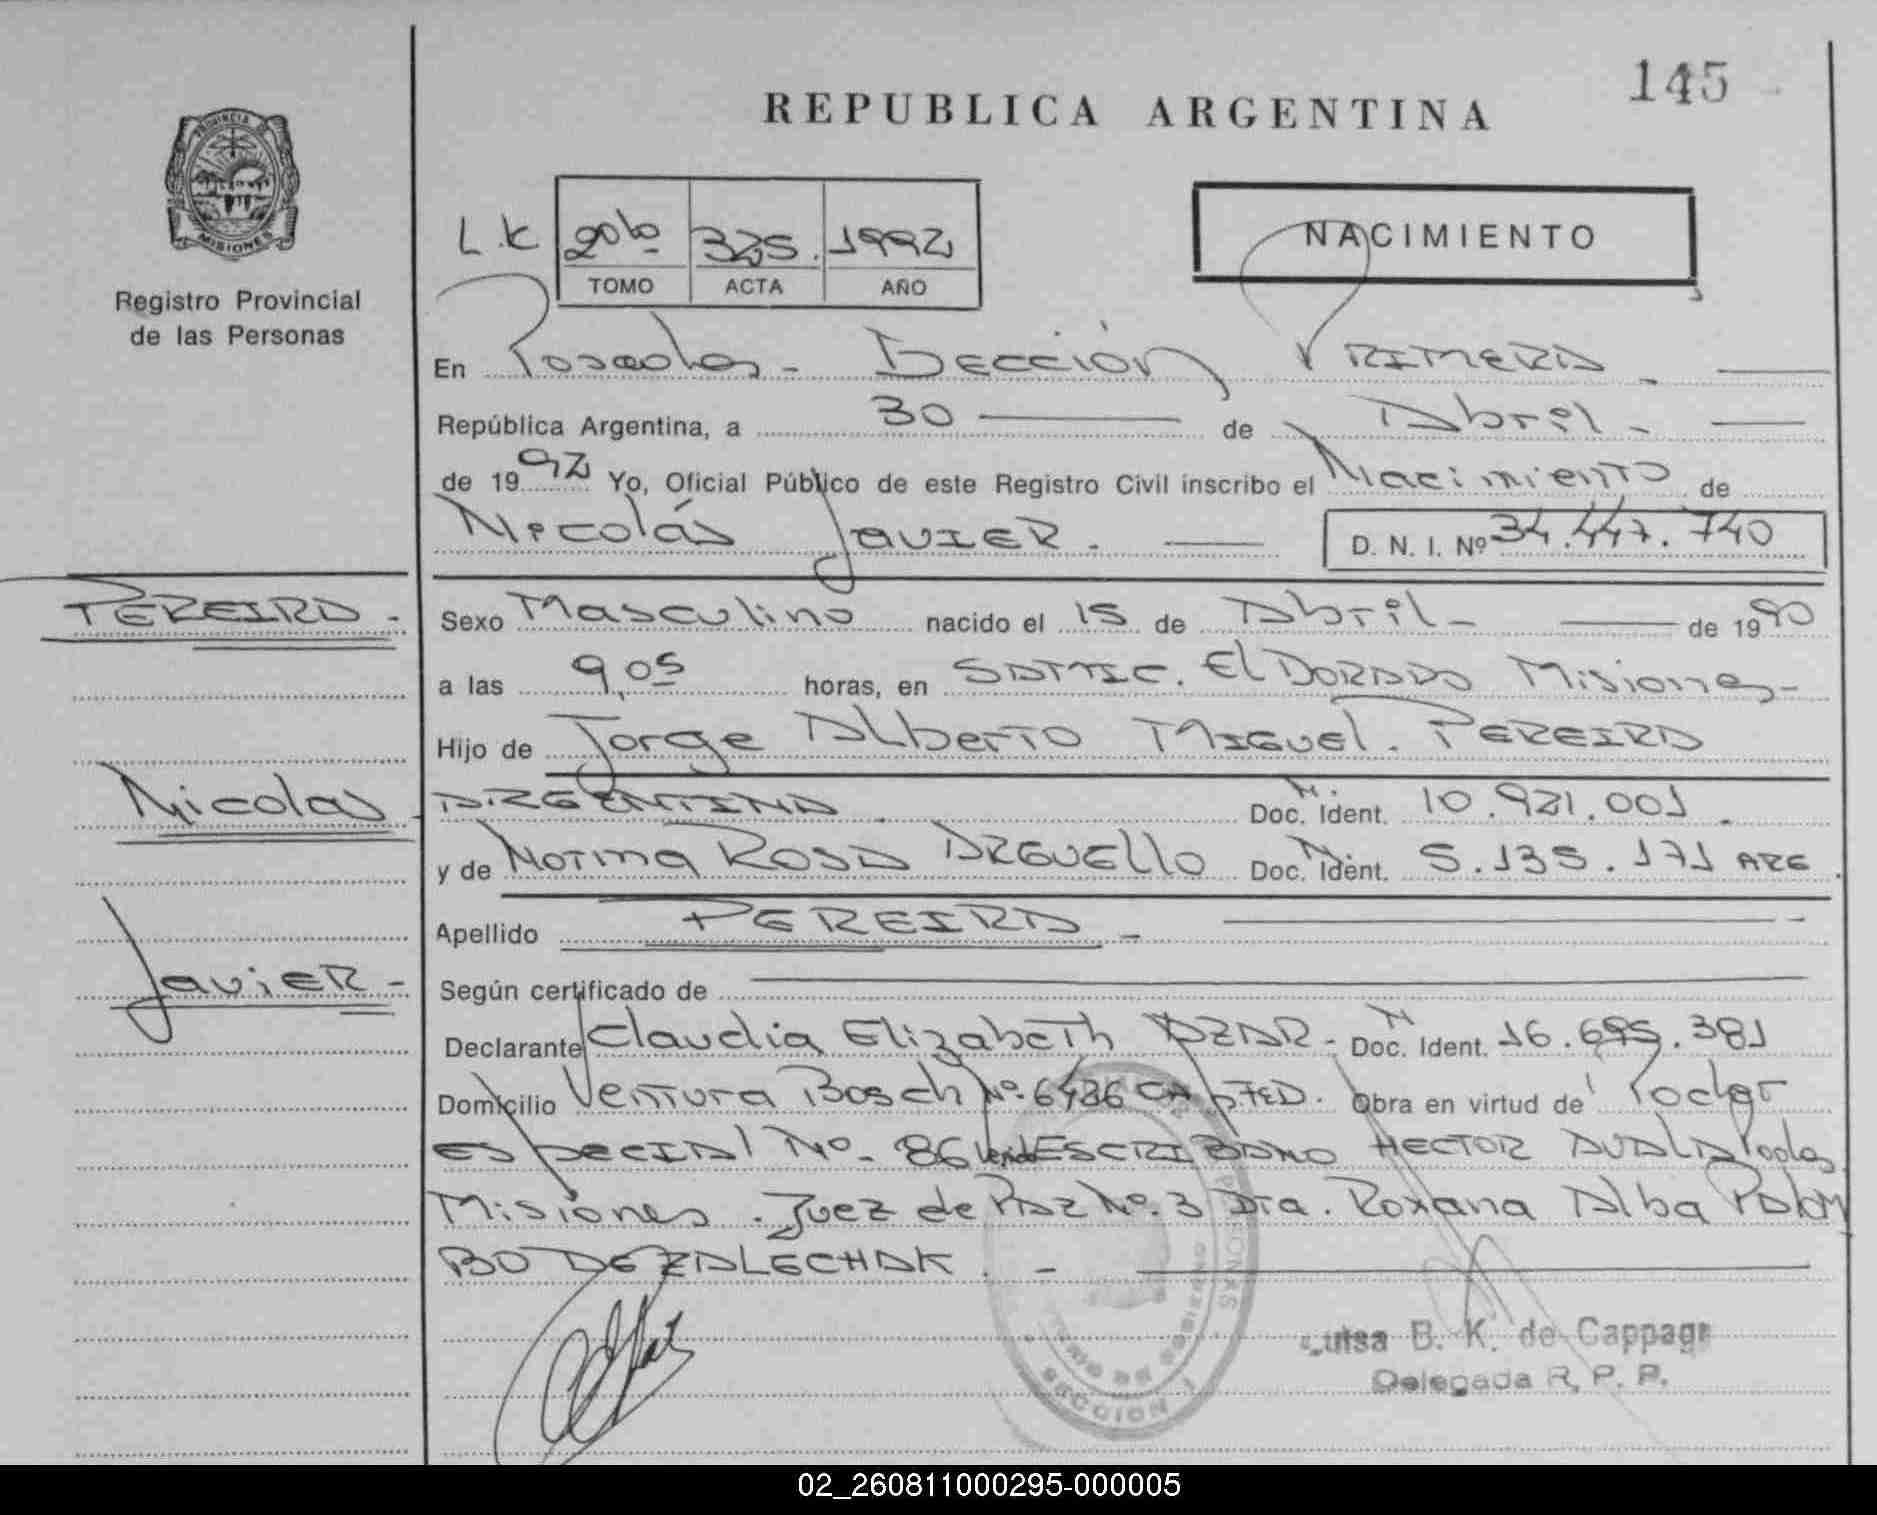 145
REPUBLICA ARGENTINA
PROVINCIA DE
MISIONES
Registro Provincial
de las Personas
L.K 20to 325. 1992
TOMO ACTA AÑO
NACIMIENTO
En Posadas - Sección PRIMERA -
República Argentina, a 30 de Abril -
de 1992 Yo, Oficial Público de este Registro Civil inscribo el Nacimiento de
Nicolás JAVIER. D. N. I. Nº 34.447.740
PEREIRA - Sexo Masculino nacido el 15 de Abril - de 1990
a las 9,05 horas, en SAMIC. ElDORADO Misiones -
Hijo de Jorge Alberto MIGUEL. PEREIRA
Nicolas ARGENTINA Doc. Ident. 10.921.001
y de Norma ROSA ARGUEllO Doc. Ident. 5.135.171 ARG
Apellido PEREIRA -
JaviER - Según certificado de
Declarante Claudia Elizabeth AZAR - Doc. Ident. 16.695.381
Domicilio Ventura Bosch Nº 6436 CAP. FED. Obra en virtud de Poder
ESPECIAl Nº 86 ESCRIBANO HECTOR Posdas
Misiones. Juez de PAZ Nº 3 Dra. Roxana Alba PALOM
BO DE ZALECHAK. -
PERSONAS
DE GOBIERNO
SECCION 1
Luisa B. K. de Cappagli
Delegada R. P. P.
02_260811000295-000005